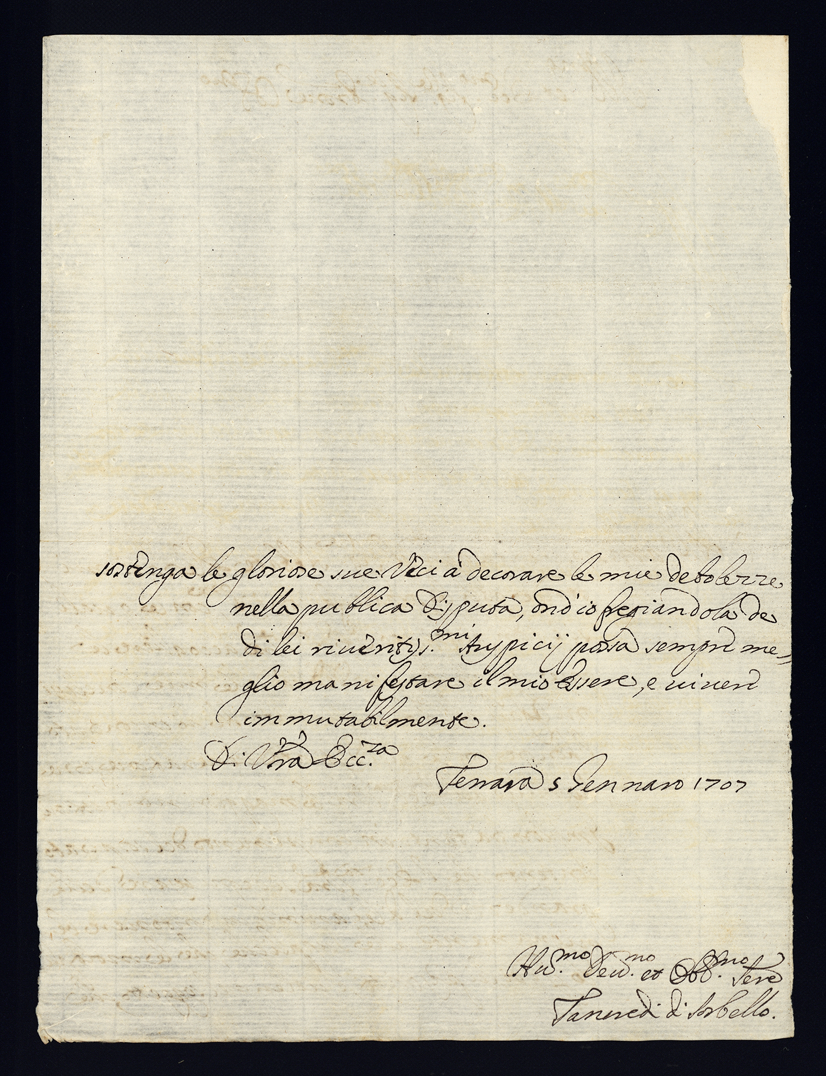 sostenga le gloriose sue Veci à decorare le mie debolezze
nella publica Disputa, ond'io fregiandola de
di lei riueritiss.mi Auspicij possa sempre me-
glio manifestare il mio essere, e uiuere
immutabilmente.
Di Vra Ecc.za
Ferrara 5 Gennaro 1707
Hu.mo Deu.no et Obb.mo Sere
Tancredi di Sorbello.